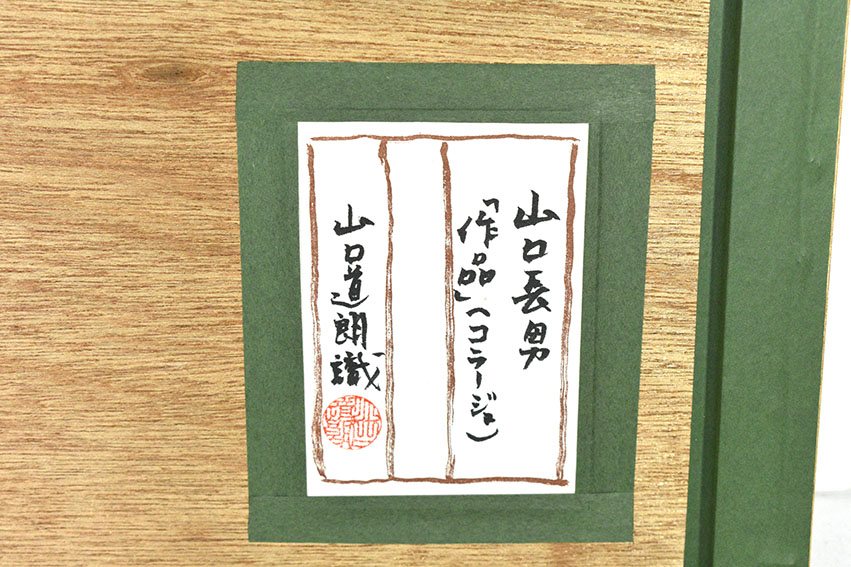 山口長男
「作品」(コラージュ)
山口道朗識